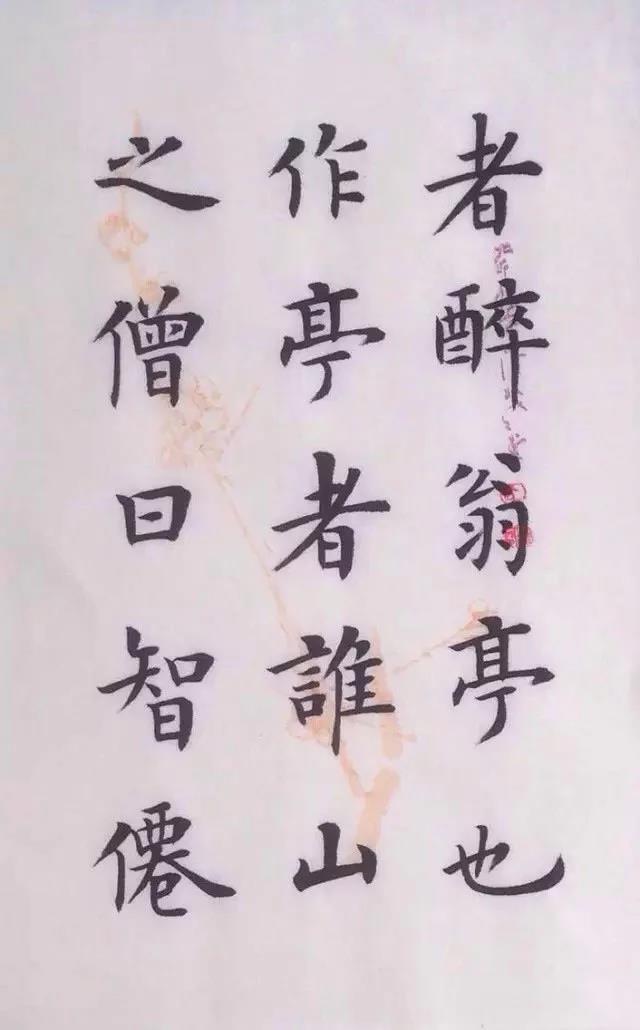 者醉翁亭也
作亭者誰山
之僧曰智僊